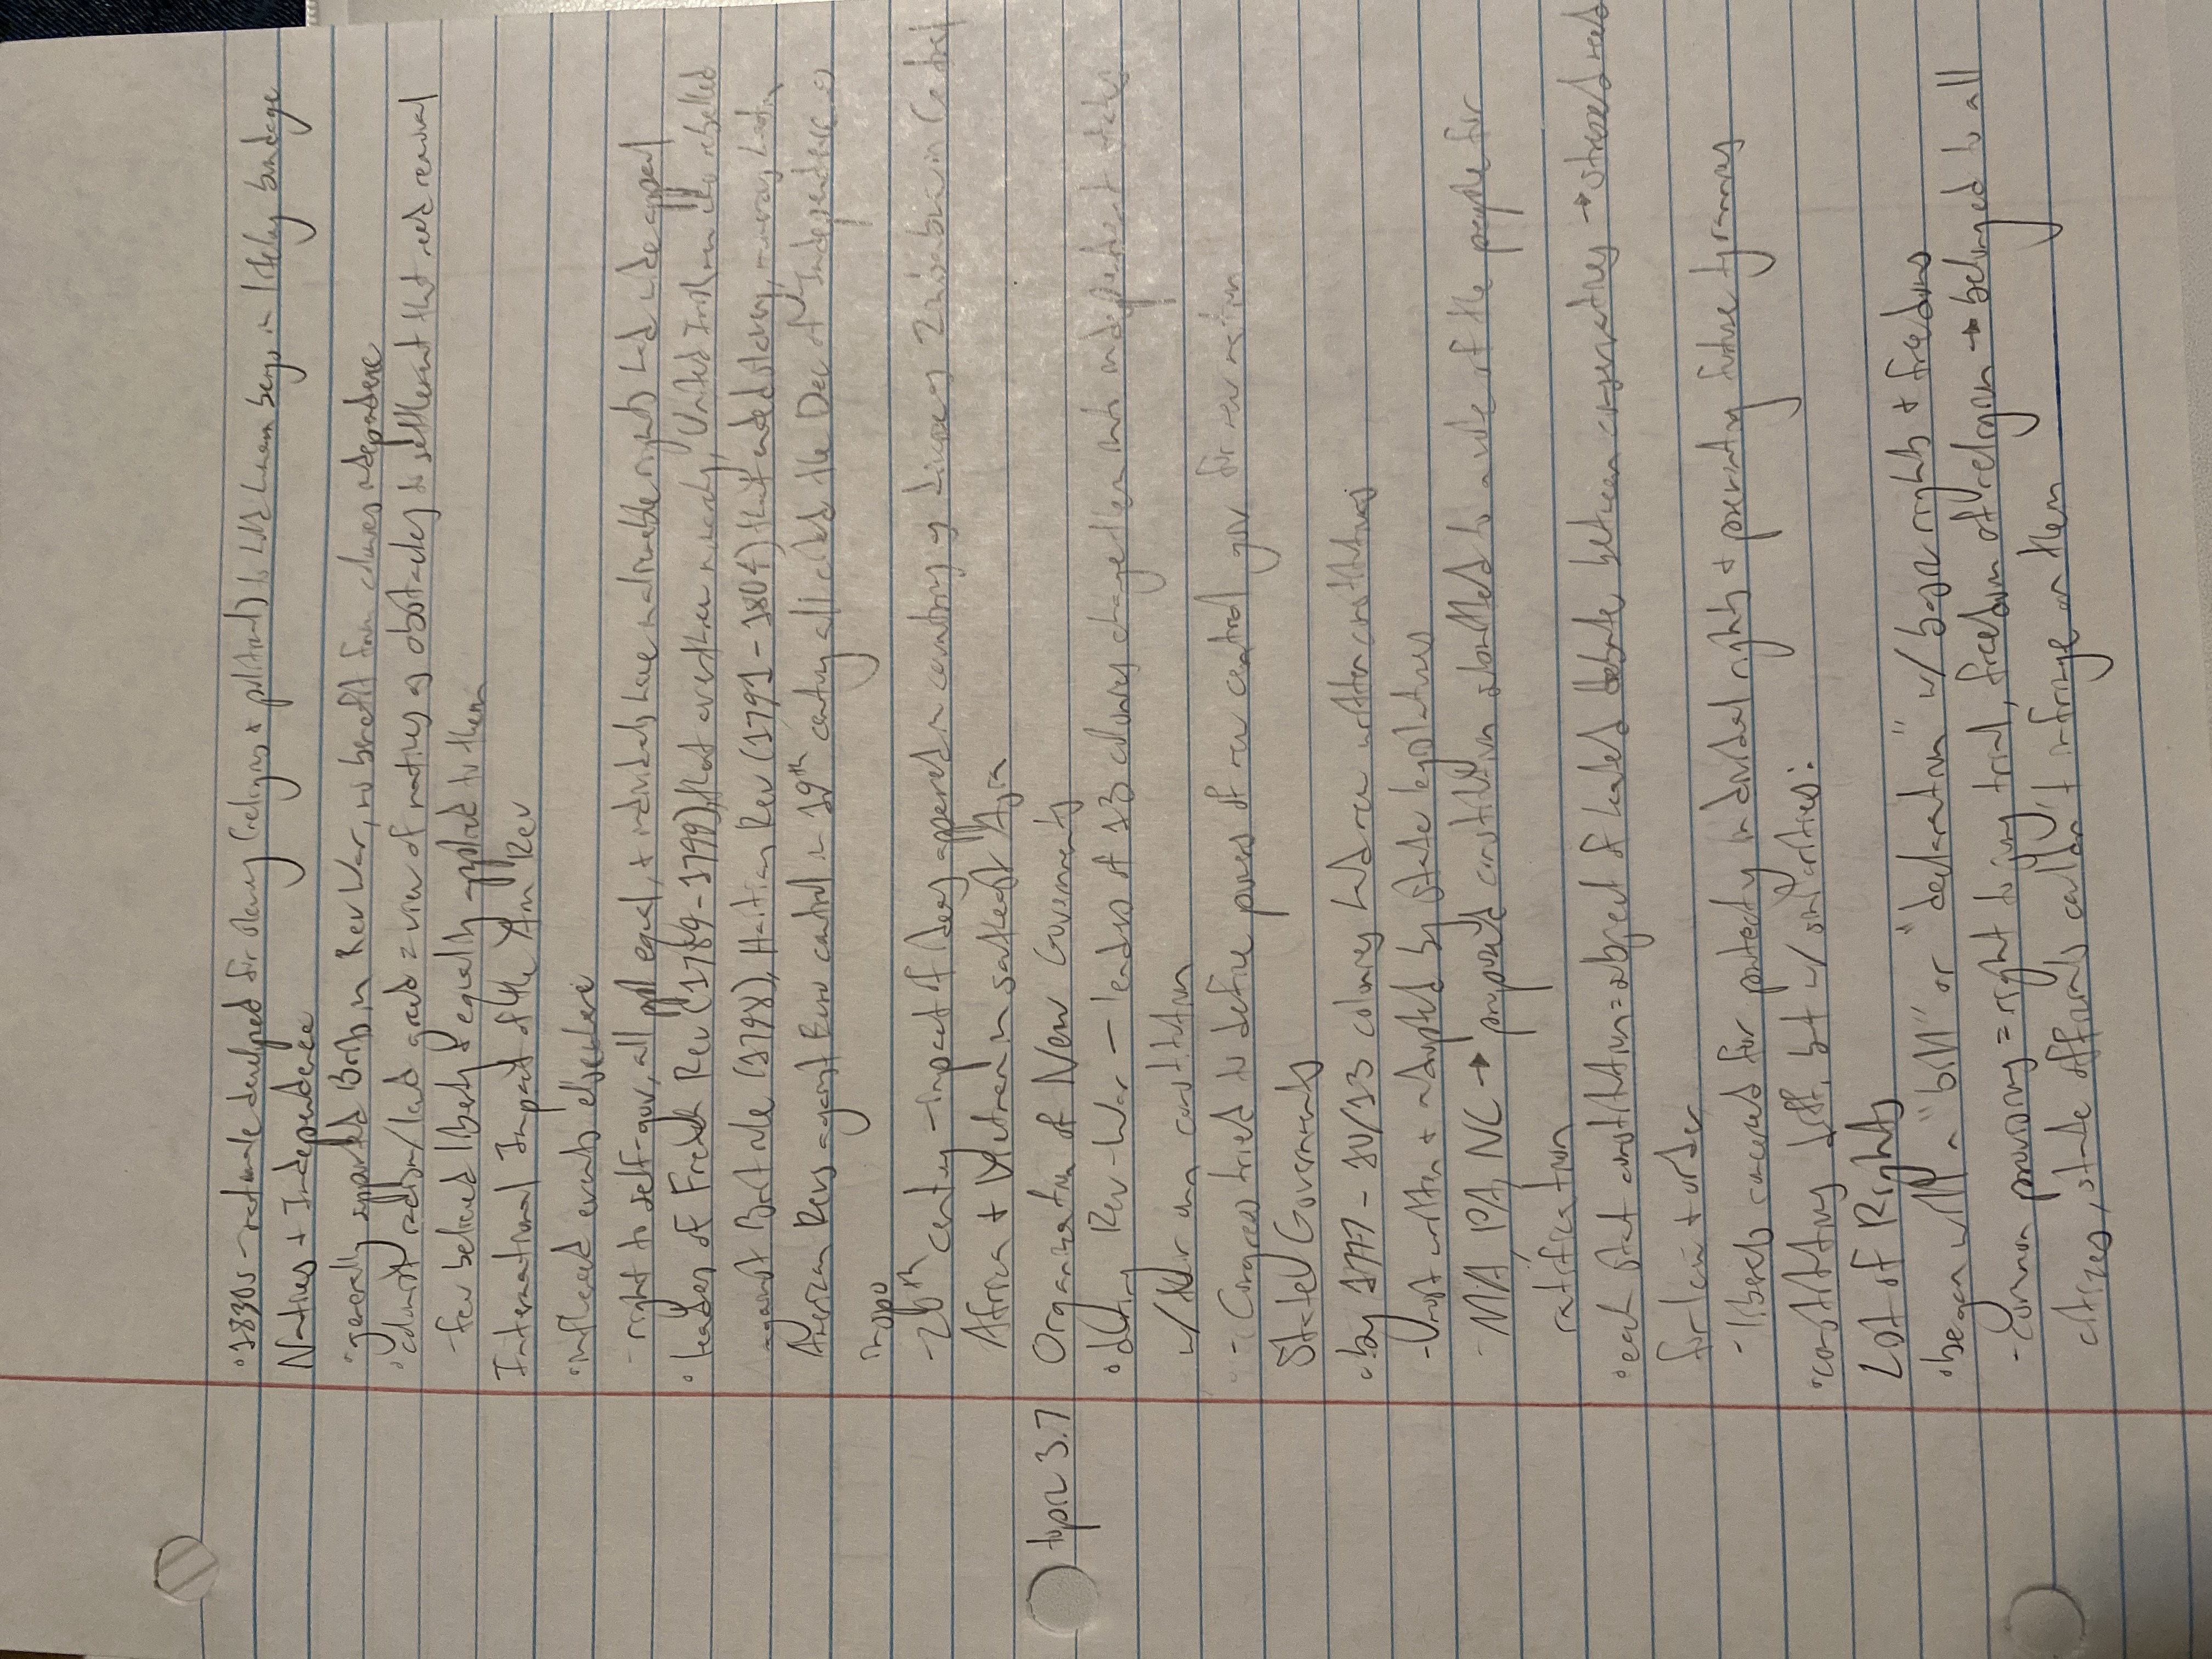 •1830s - rationale developed for slavery (religious + political) to hold human beings in lifelong bondage
Natives + Independence
•generally supported British in Rev War, no benefit from colonies independence
•colonist / land greed = view of natives as obstacles to settlement that need removal
-few believed liberty & equality applied to them
International Impact of the Am Rev
•influenced events elsewhere
-right to self-gov, all ppl equal, + individuals have inalienable rights had wide appeal
•leaders of French Rev (1789-1799) that overthrew monarchy, United Irishmen who rebelled
against Brit rule (1798), Haitian Rev (1791-1804) that ended slavery, numerous Latin
American Revs against Euro control in 19th century all cited the Dec of Independence as
inspo
-20th century - impact of ideas appeared in countries as diverse as Zimbabwe in Central
Africa + Vietnam in southeast Asia
topic 3.7 Organization of New Governments
•during Rev-War - leaders of 13 colonies change them into independent states
w/ their own constitution
-Congress tried to define powers of new central gov for new nation
State Governments
•by 1777 - 10/13 colonies had new written constitutions
-most written + adopted by state legislatures
-MA PA, NC → proposed constitution submitted to a vote of the people for
ratification
•each state constitution = subject of heated debate between conservatives → stressed need
for law + order
-liberals concerned for protecting individual rights + preventing future tyrannies
•constitutions diff, but w/ similarities:
List of Rights
•began with a "bill" or "declaration" w/ basic rights + freedoms
-common provisions = right to jury trial, freedom of religion → belonged to all
citizens, state officials couldn't infringe on them